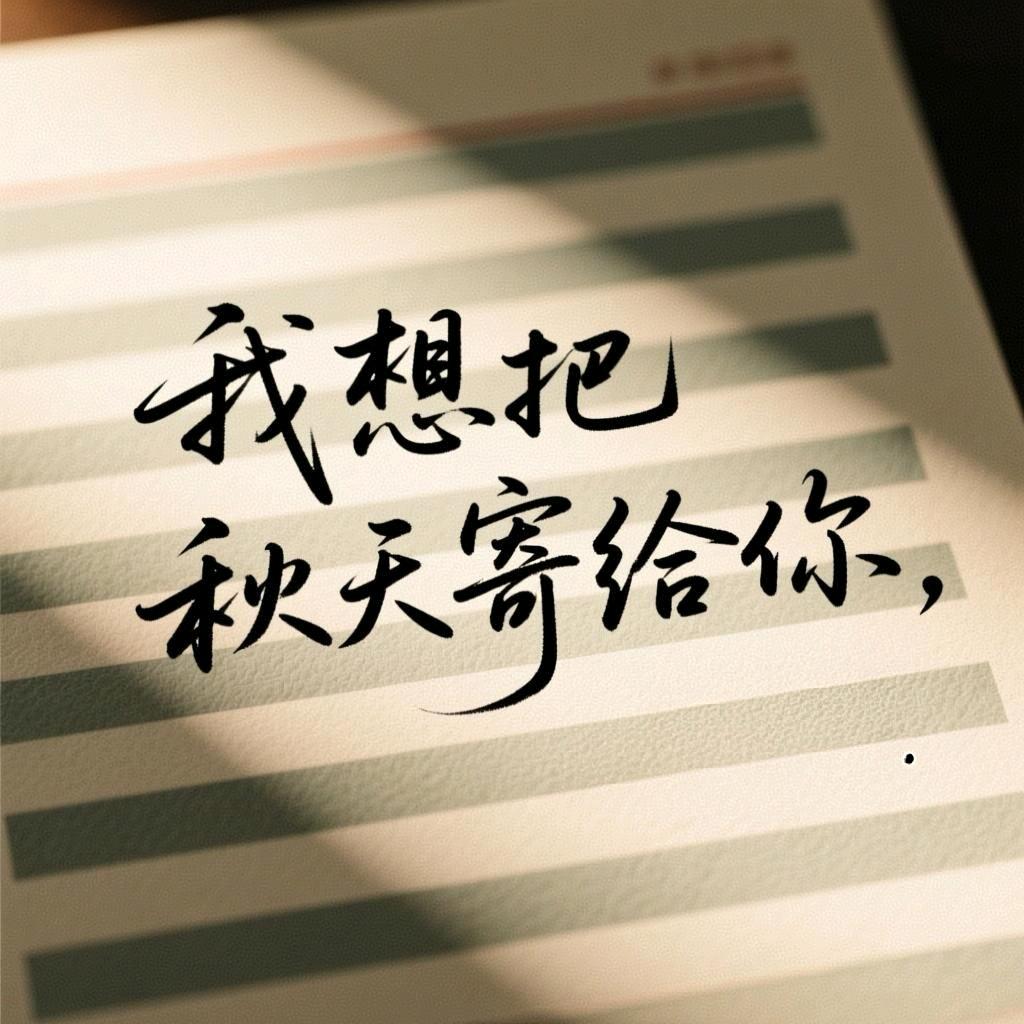 我想把
秋天寄给你，